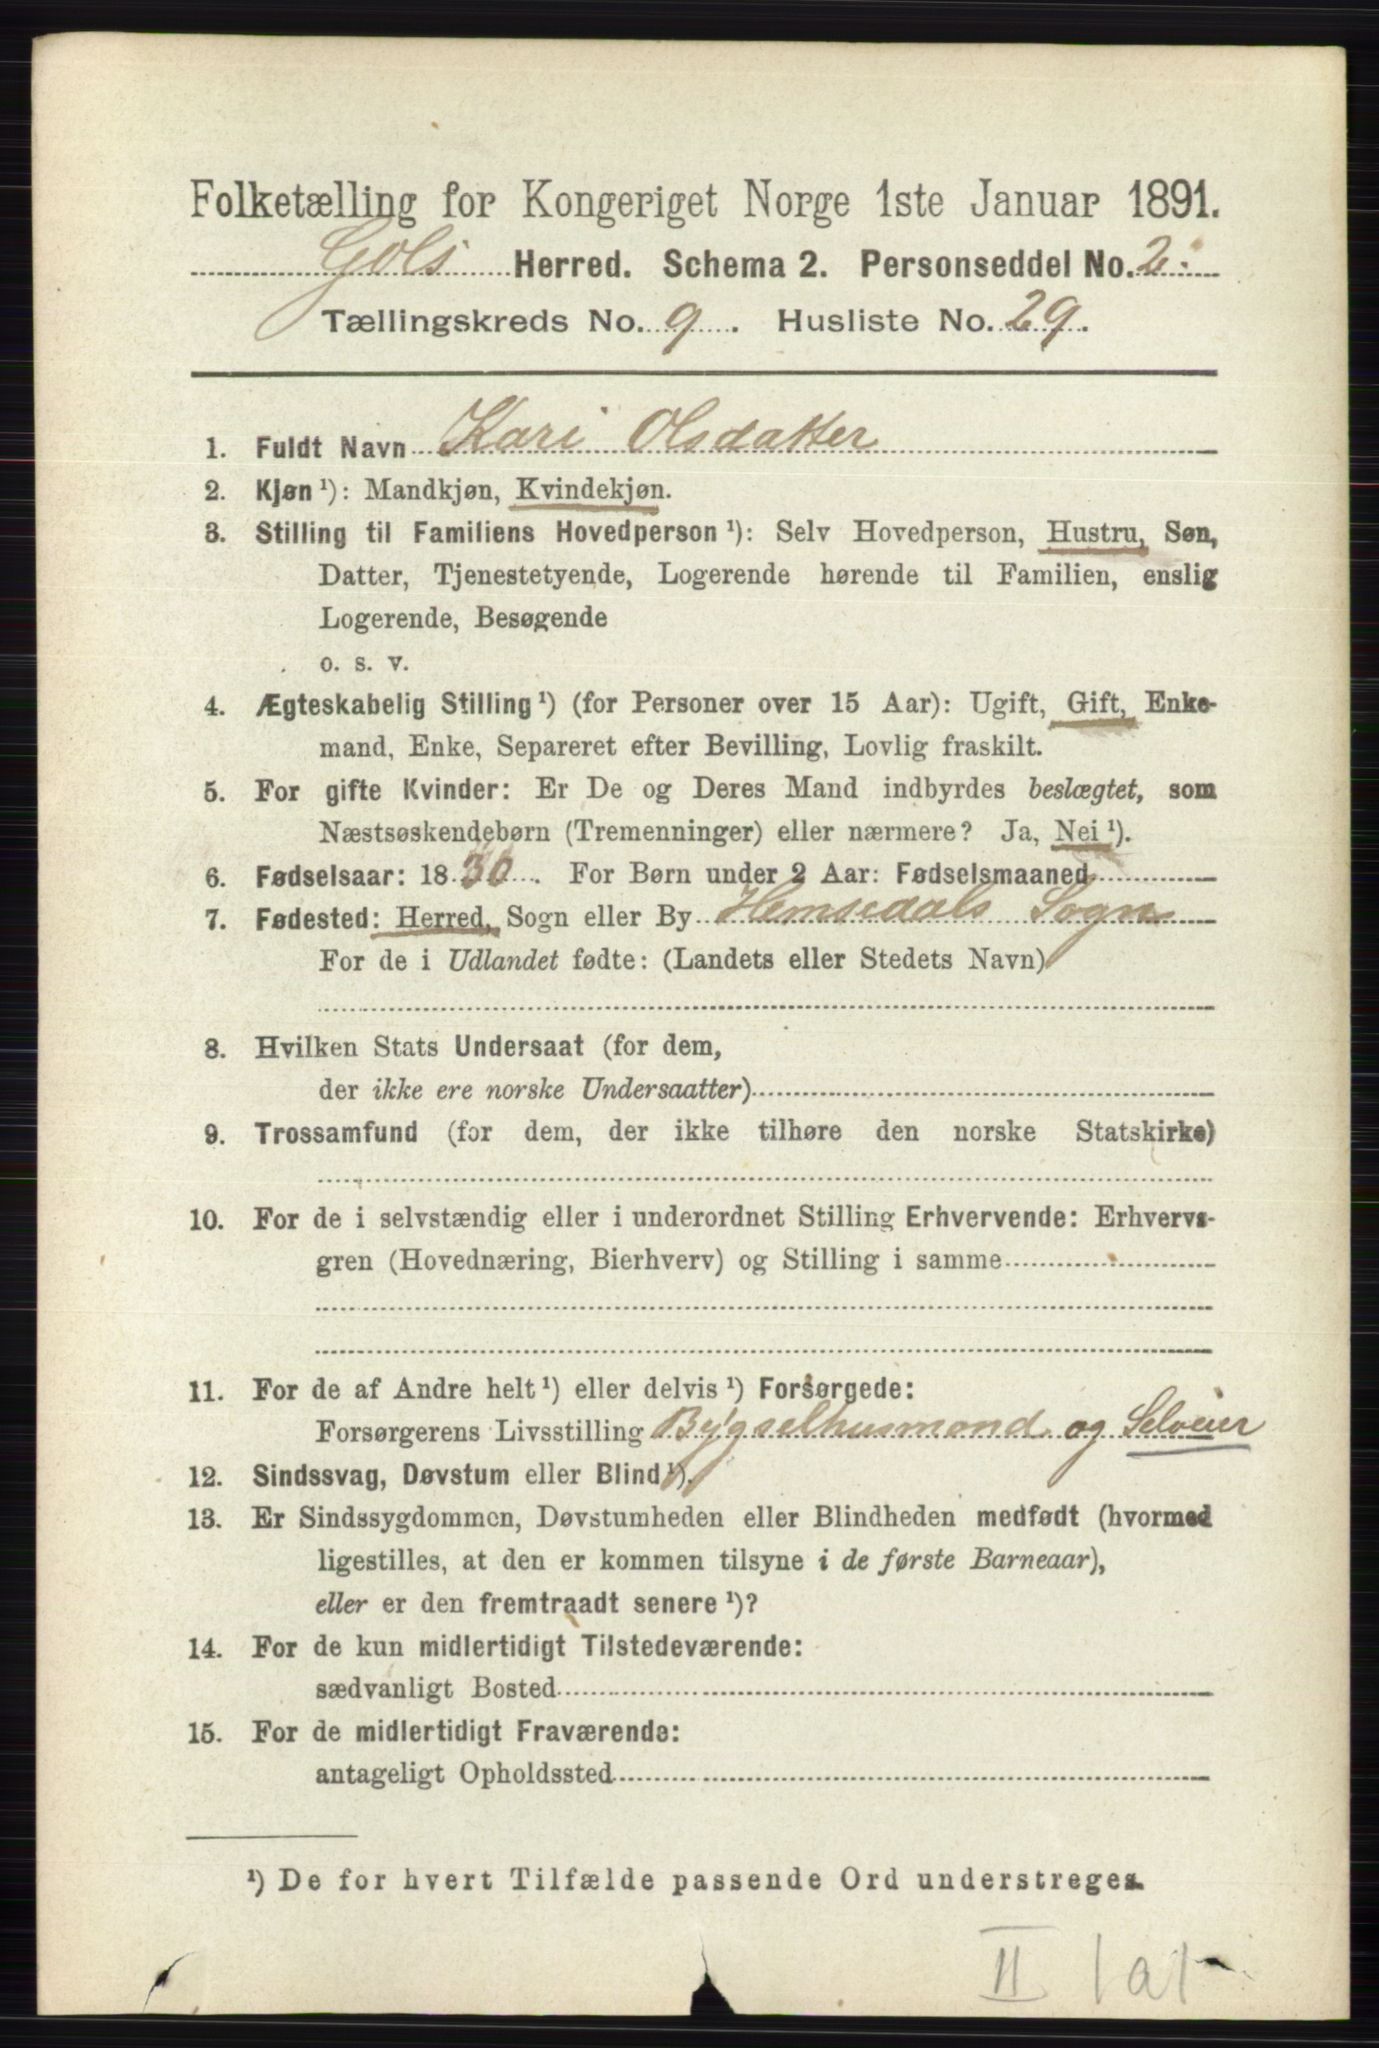 Folketælling for Kongeriget Norge 1ste Januar 1891.
Gols Herred. Schema 2. Personseddel No. 2.
Tællingskreds No. 9. Husliste No. 29.
1. Fuldt Navn Kari Olsdatter
2. Kjøn ¹): Mandkjøn, Kvindekjøn.
3. Stilling til Familiens Hovedperson ¹): Selv Hovedperson, Hustru, Søn,
Datter, Tjenestetyende, Logerende hørende til Familien, enslig
Logerende, Besøgende
o. s. v.
4. Ægteskabelig Stilling ¹) (for Personer over 15 Aar): Ugift, Gift, Enke-
mand, Enke, Separeret efter Bevilling, Lovlig fraskilt.
5. For gifte Kvinder: Er De og Deres Mand indbyrdes beslægtet, som
Næstsøskendebørn (Tremenninger) eller nærmere? Ja, Nei ¹).
6. Fødselsaar: 1830. For Børn under 2 Aar: Fødselsmaaned
7. Fødested: Herred, Sogn eller By Hemsedals Sogn
For de i Udlandet fødte: (Landets eller Stedets Navn)
8. Hvilken Stats Undersaat (for dem,
der ikke ere norske Undersaatter)
9. Trossamfund (for dem, der ikke tilhøre den norske Statskirke)
10. For de i selvstændig eller i underordnet Stilling Erhvervende: Erhvervs-
gren (Hovednæring, Bierhverv) og Stilling i samme
11. For de af Andre helt ¹) eller delvis ¹) Forsørgede:
Forsørgerens Livsstilling Bygselhusmand og Selveier
12. Sindssvag, Døvstum eller Blind ¹).
13. Er Sindssygdommen, Døvstumheden eller Blindheden medfødt (hvormed
ligestilles, at den er kommen tilsyne i de første Barneaar),
eller er den fremtraadt senere ¹)?
14. For de kun midlertidigt Tilstedeværende:
sædvanligt Bosted
15. For de midlertidigt Fraværende:
antageligt Opholdssted
¹) De for hvert Tilfælde passende Ord understreges.
II |a|